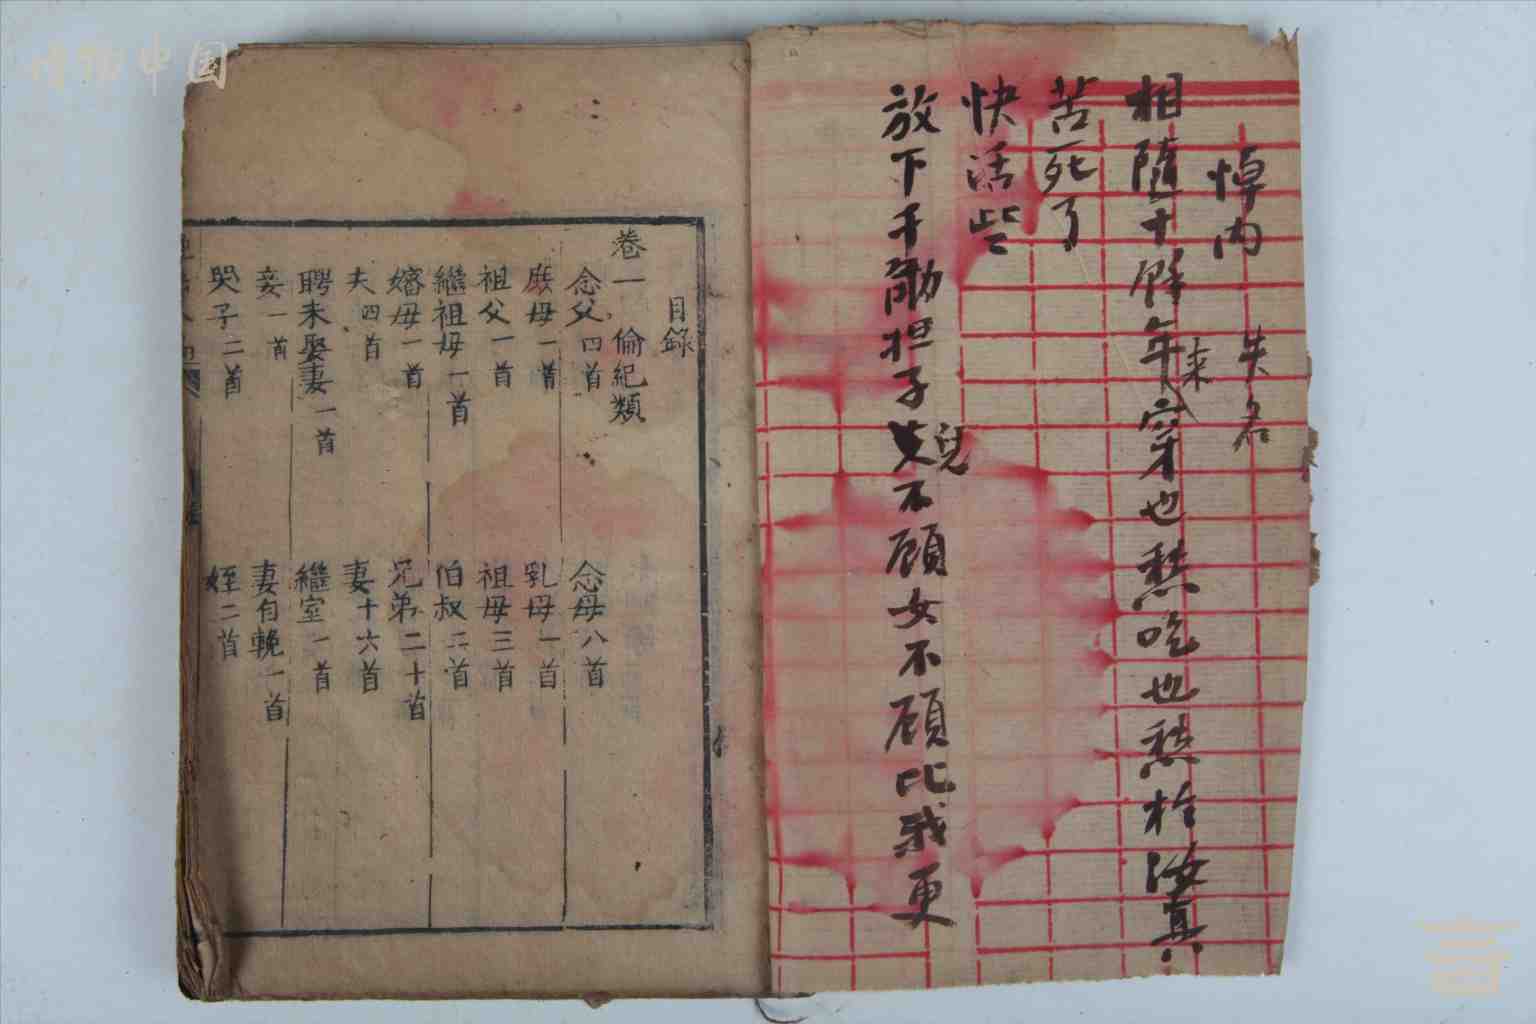 悼内 失名
相隨十餘年来穿也愁吃也愁於汝真
苦死了
放下千觔担子兒不顧女不顧比我更
快活些
目錄
卷一 倫紀類
念父四首 念母八首
庶母一首 乳母一首
祖父一首 祖母三首
繼祖母一首 伯叔二首
嬸母一首 兄弟二十首
夫四首 妻十六首
聘未娶妻一首 繼室一首
妾一首 妻自輓一首
哭子二首 姪二首
博物中国